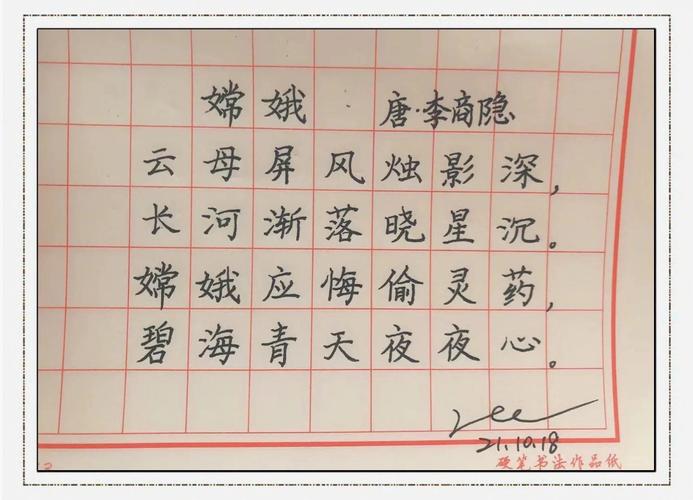 嫦娥 唐·李商隐
云母屏风烛影深，
长河渐落晓星沉。
嫦娥应悔偷灵药，
碧海青天夜夜心。
Lee
21.10.18
硬笔书法作品纸